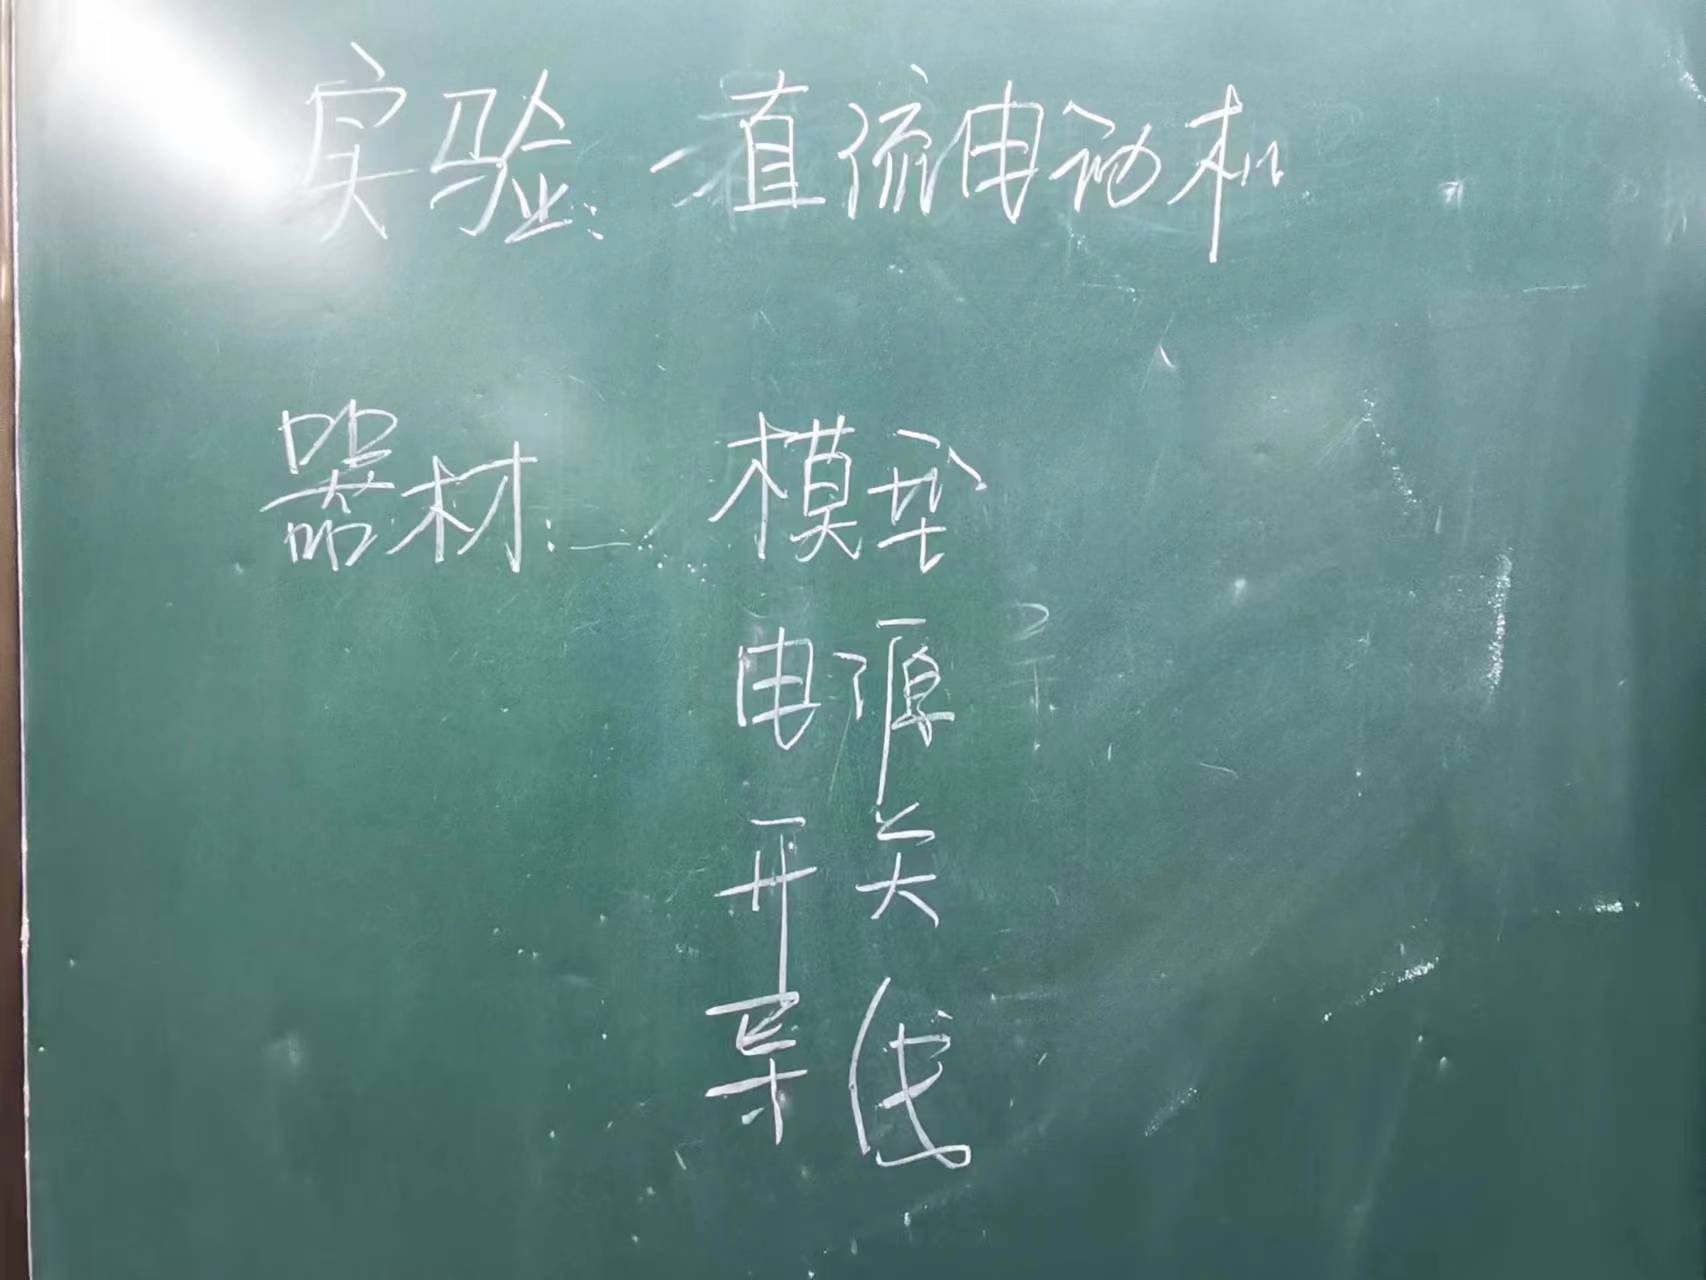 实验:直流电动机
器材: 模型
电源
开关
导线